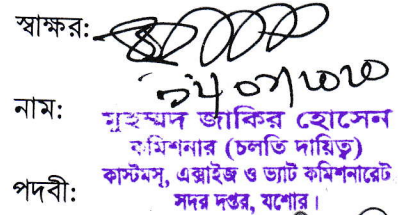 স্বাক্ষর:
নাম: মুহম্মদ জাকির হোসেন
কমিশনার (চলতি দায়িত্ব)
পদবী: কাস্টমস্, এক্সাইজ ও ভ্যাট কমিশনারেট
সদর দপ্তর, যশোর।